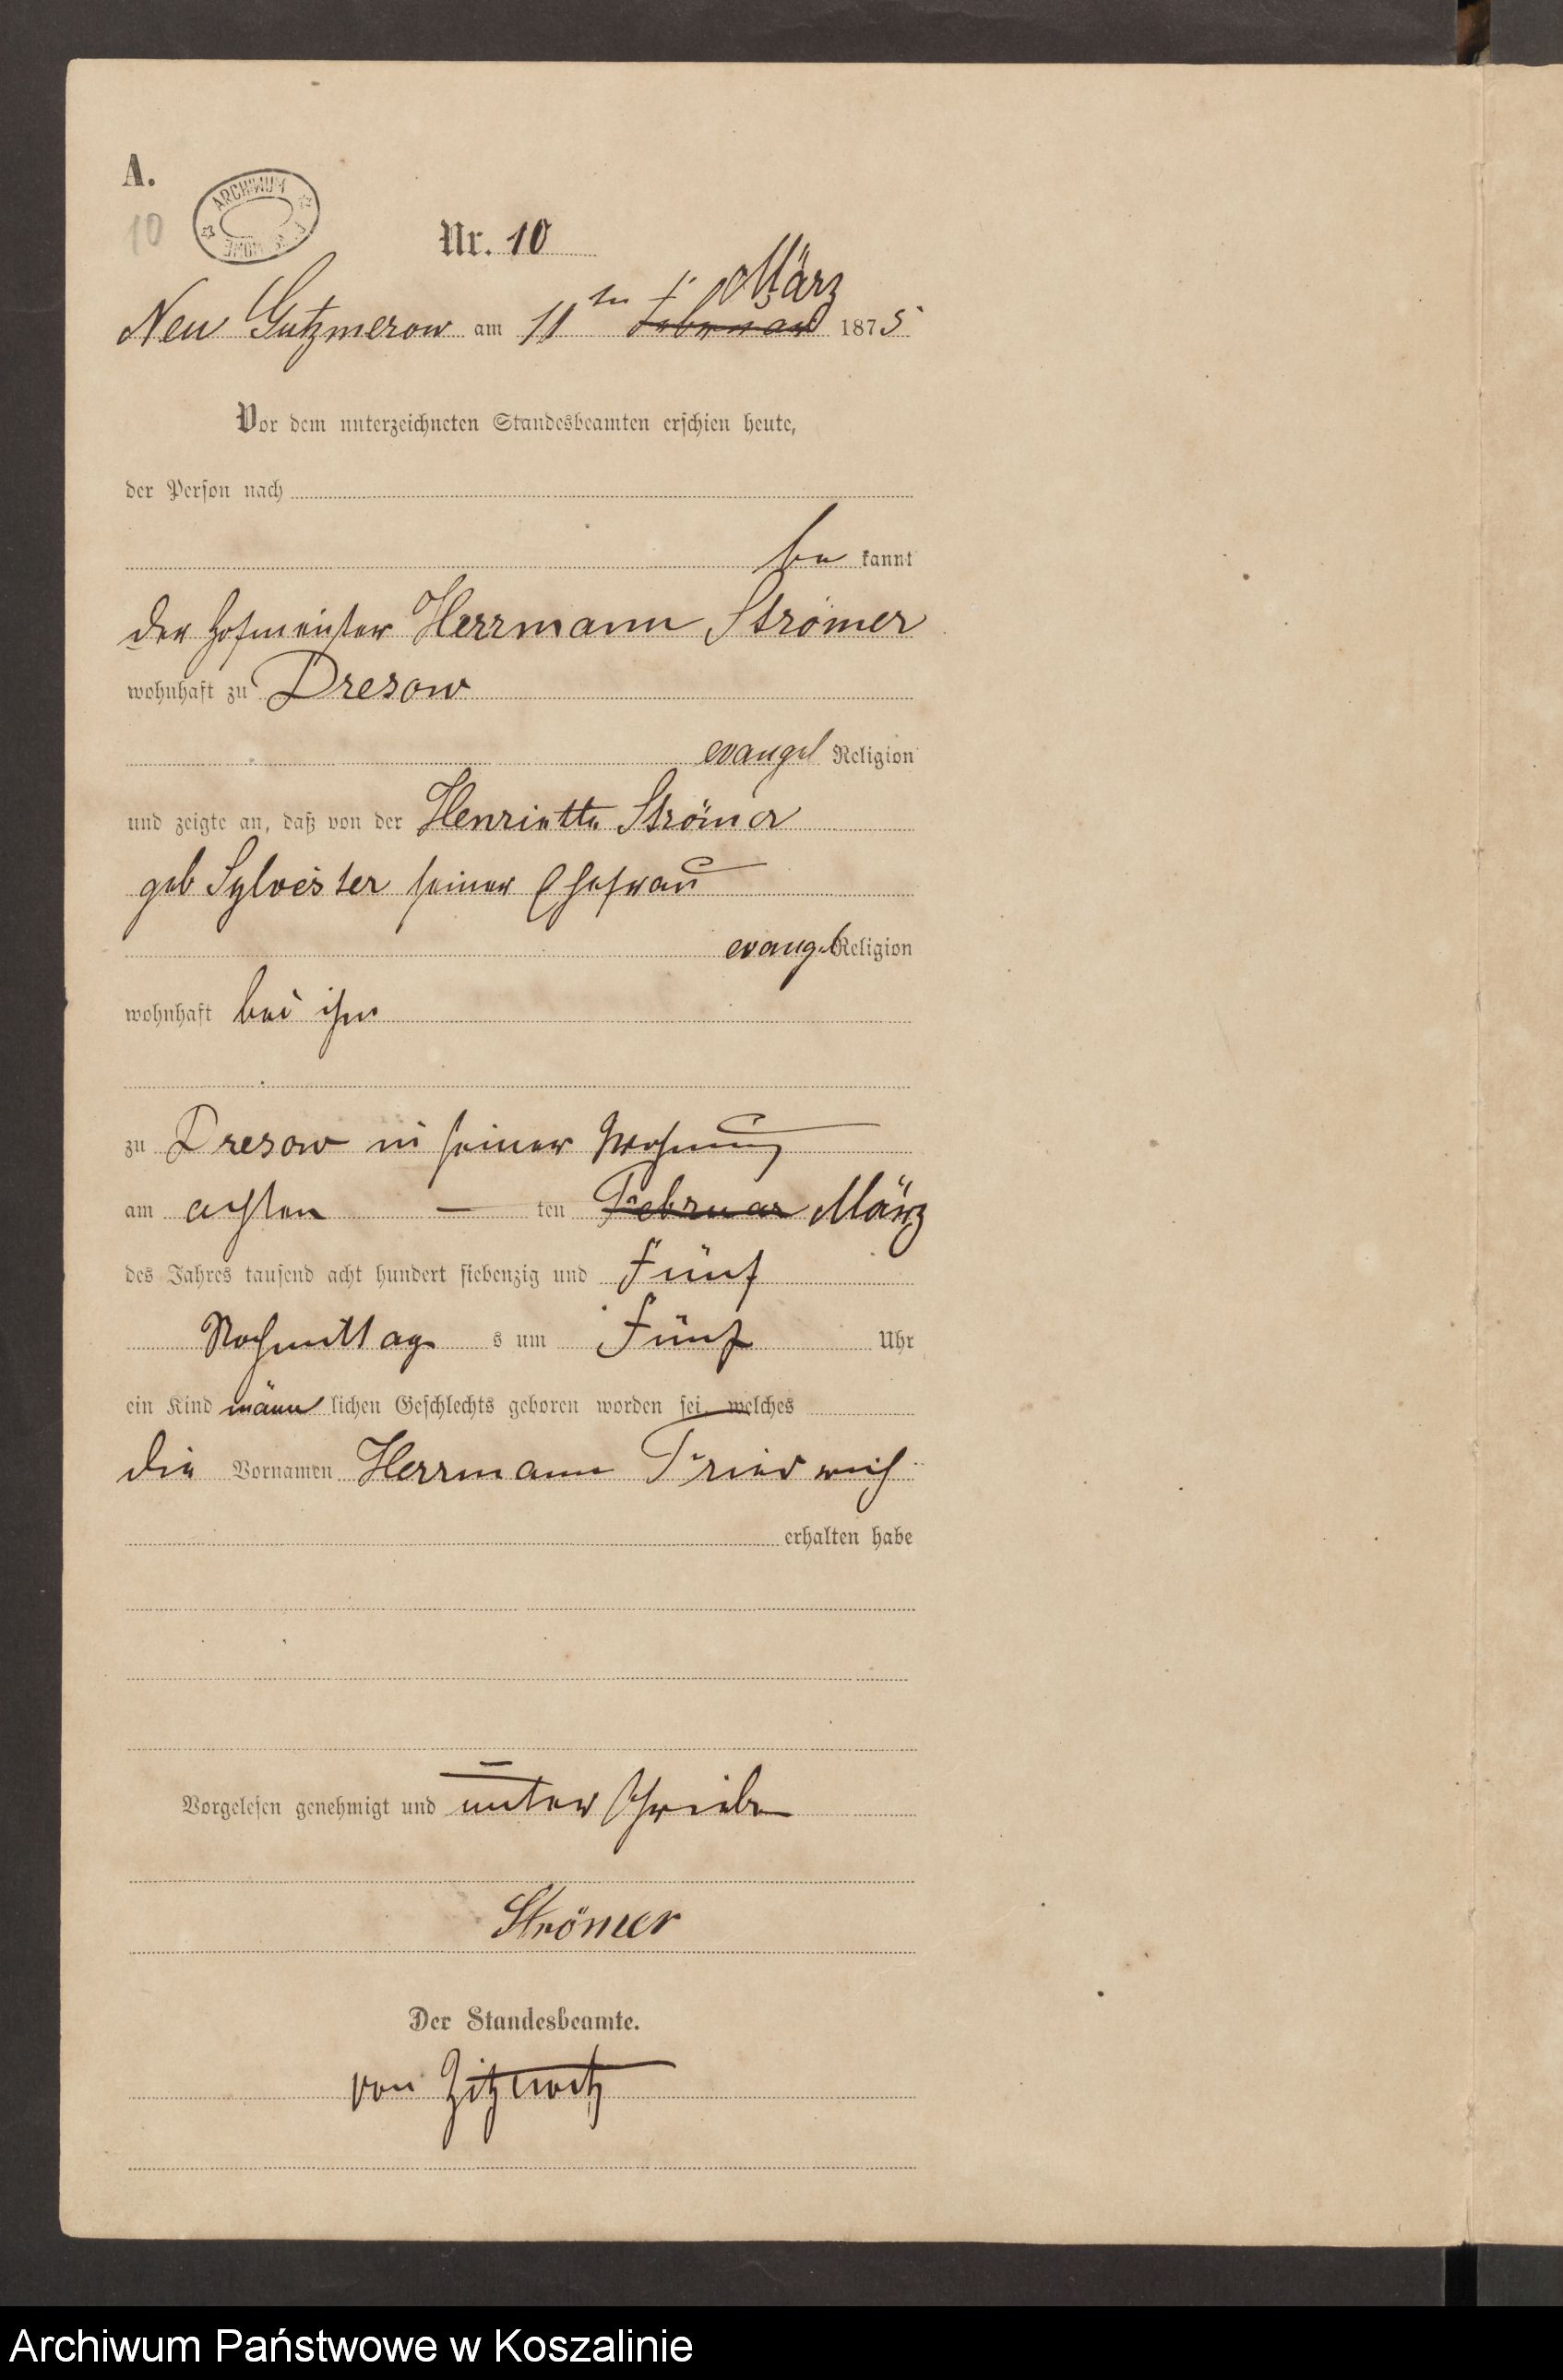 A.
10
ARCHIWUM
Nr. 10
März
Neu Gutzmerow am 11ten Februar 1875
Vor dem unterzeichneten Standesbeamten erschien heute,
der Person nach
be kannt
der Hofmeister Herrmann Strömer
wohnhaft zu Dresow
evangel Religion
und zeigte an, daß von der Henriette Strömer
geb Sylvester seiner Ehefrau
evangel Religion
wohnhaft bei ihm
zu Dresow in seiner Wohnung
am achten — ten Februar März
des Jahres tausend acht hundert siebenzig und Fünf
Nachmittag s um Fünf Uhr
ein Kind männ lichen Geschlechts geboren worden sei, welches
die Vornamen Herrmann Friedrich
erhalten habe
Vorgelesen genehmigt und unterschrieben
Strömer
Der Standesbeamte.
von Zitzewitz
Archiwum Państwowe w Koszalinie